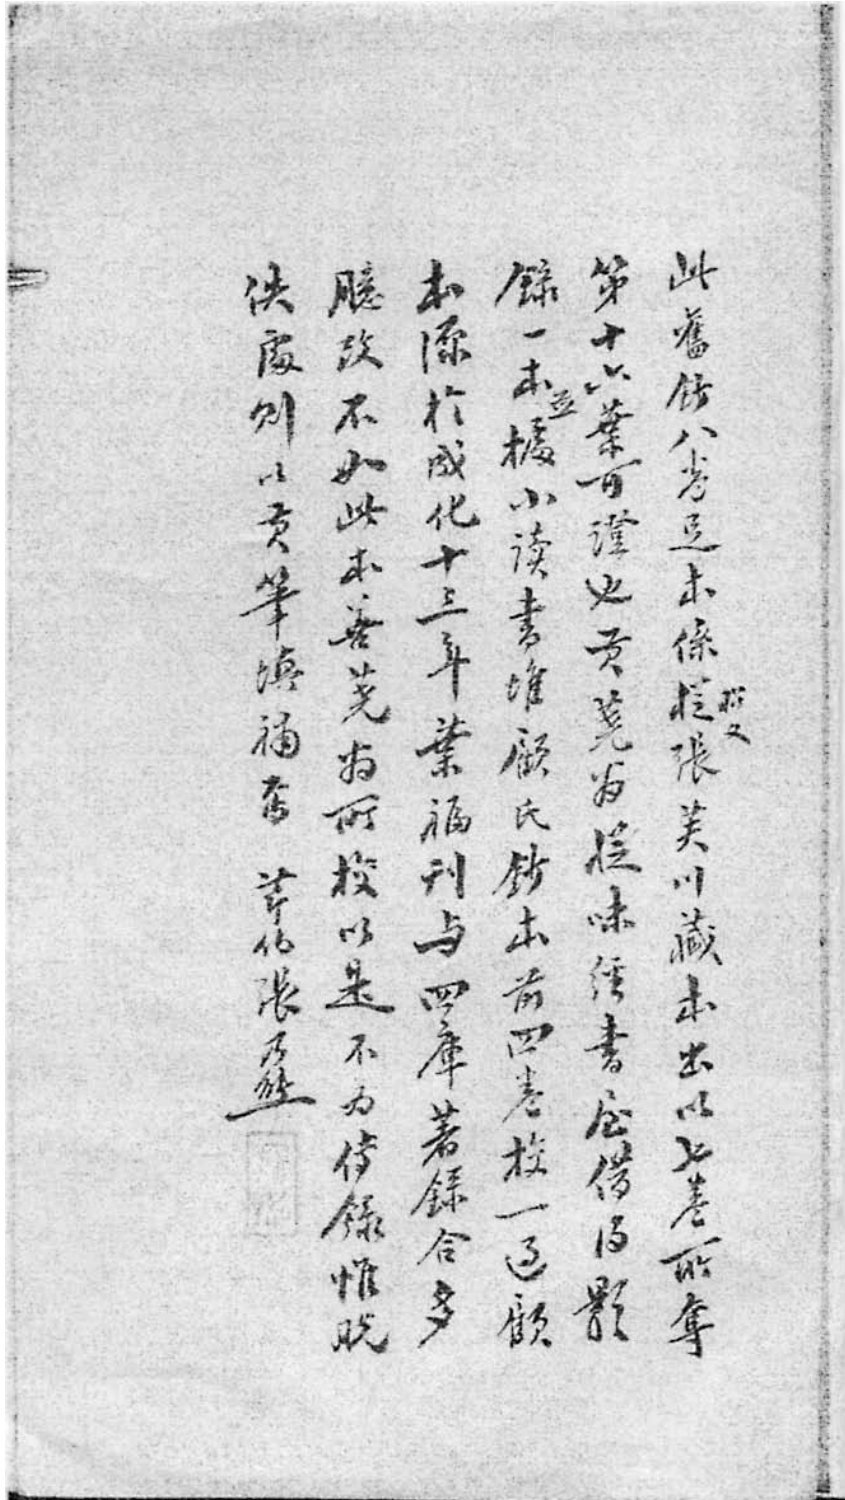 此舊鈔八卷足本係從張芙川藏本出以七卷所奪
第十六葉可證也黃蕘翁從味經書屋借得影
錄一本並據小读書堆顧氏鈔本前四卷校一過顧
本源於成化十三年葉福刊与四庫著錄合多
臆改不如此本善蕘翁所校以是不为傳錄惟脱
佚處則以黃筆填補焉 芹伯張乃熊